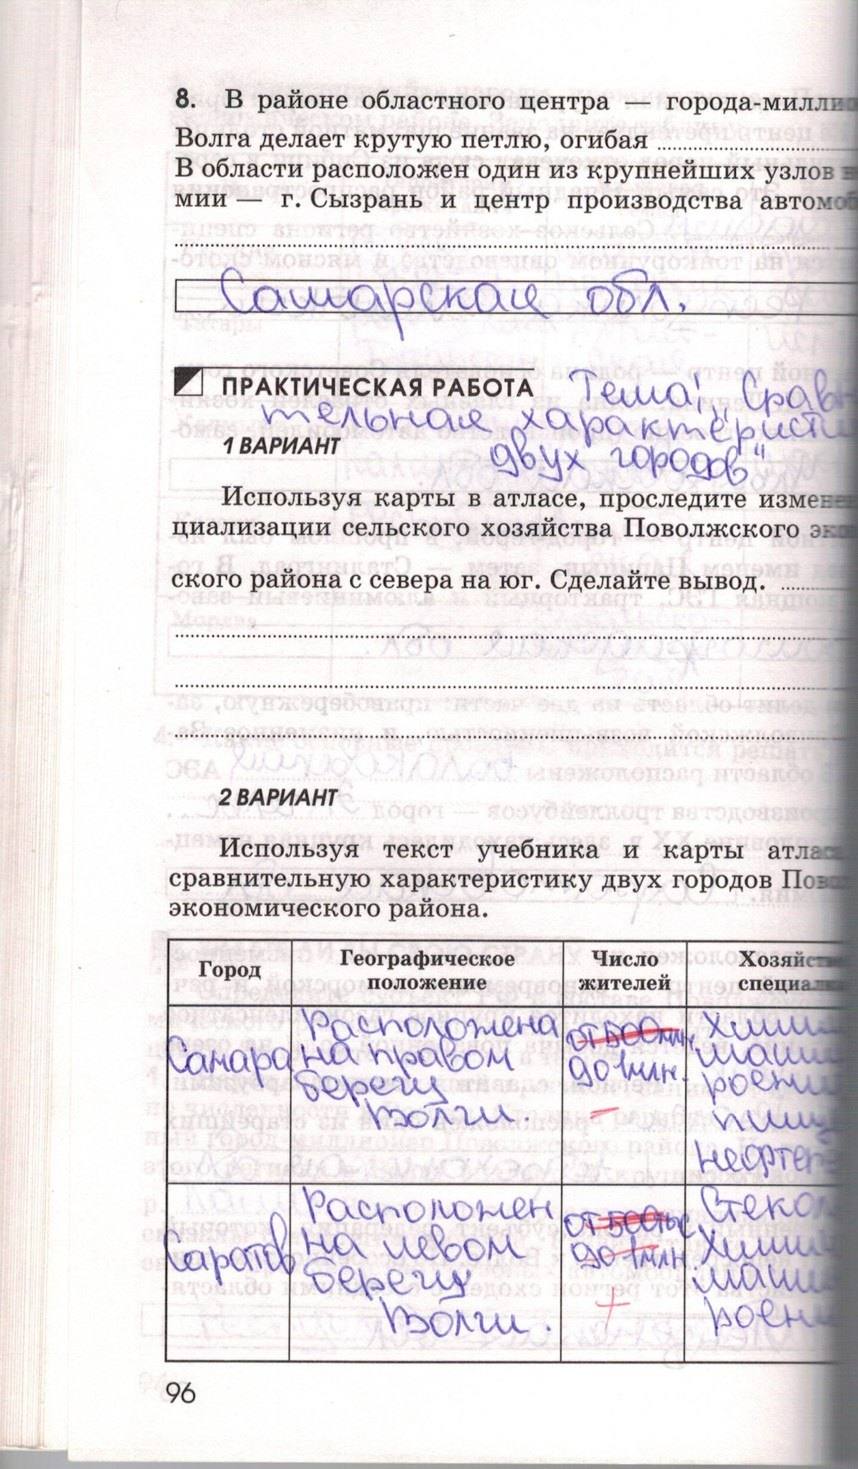 8. В районе областного центра — города-милли
Волга делает крутую петлю, огибая
В области расположен один из крупнейших узлов
мии — г. Сызрань и центр производства автомоб
Самарская обл.
ПРАКТИЧЕСКАЯ РАБОТА Тема: „Срав
тельная характеристи
1 ВАРИАНТ двух городов"
Используя карты в атласе, проследите измене
циализации сельского хозяйства Поволжского эко
ского района с севера на юг. Сделайте вывод.
2 ВАРИАНТ
Используя текст учебника и карты атла
сравнительную характеристику двух городов Пов
экономического района.
Город Географическое положение Число жителей Хозяйст специал
Самара Расположена на правом берегу Волги. от 500 до 1 млн. – Хими маши роени пищ нефтеп
Саратов Расположен на левом берегу Волги. от 500 тыс до 1 млн + Стекол Хими маши роени
96